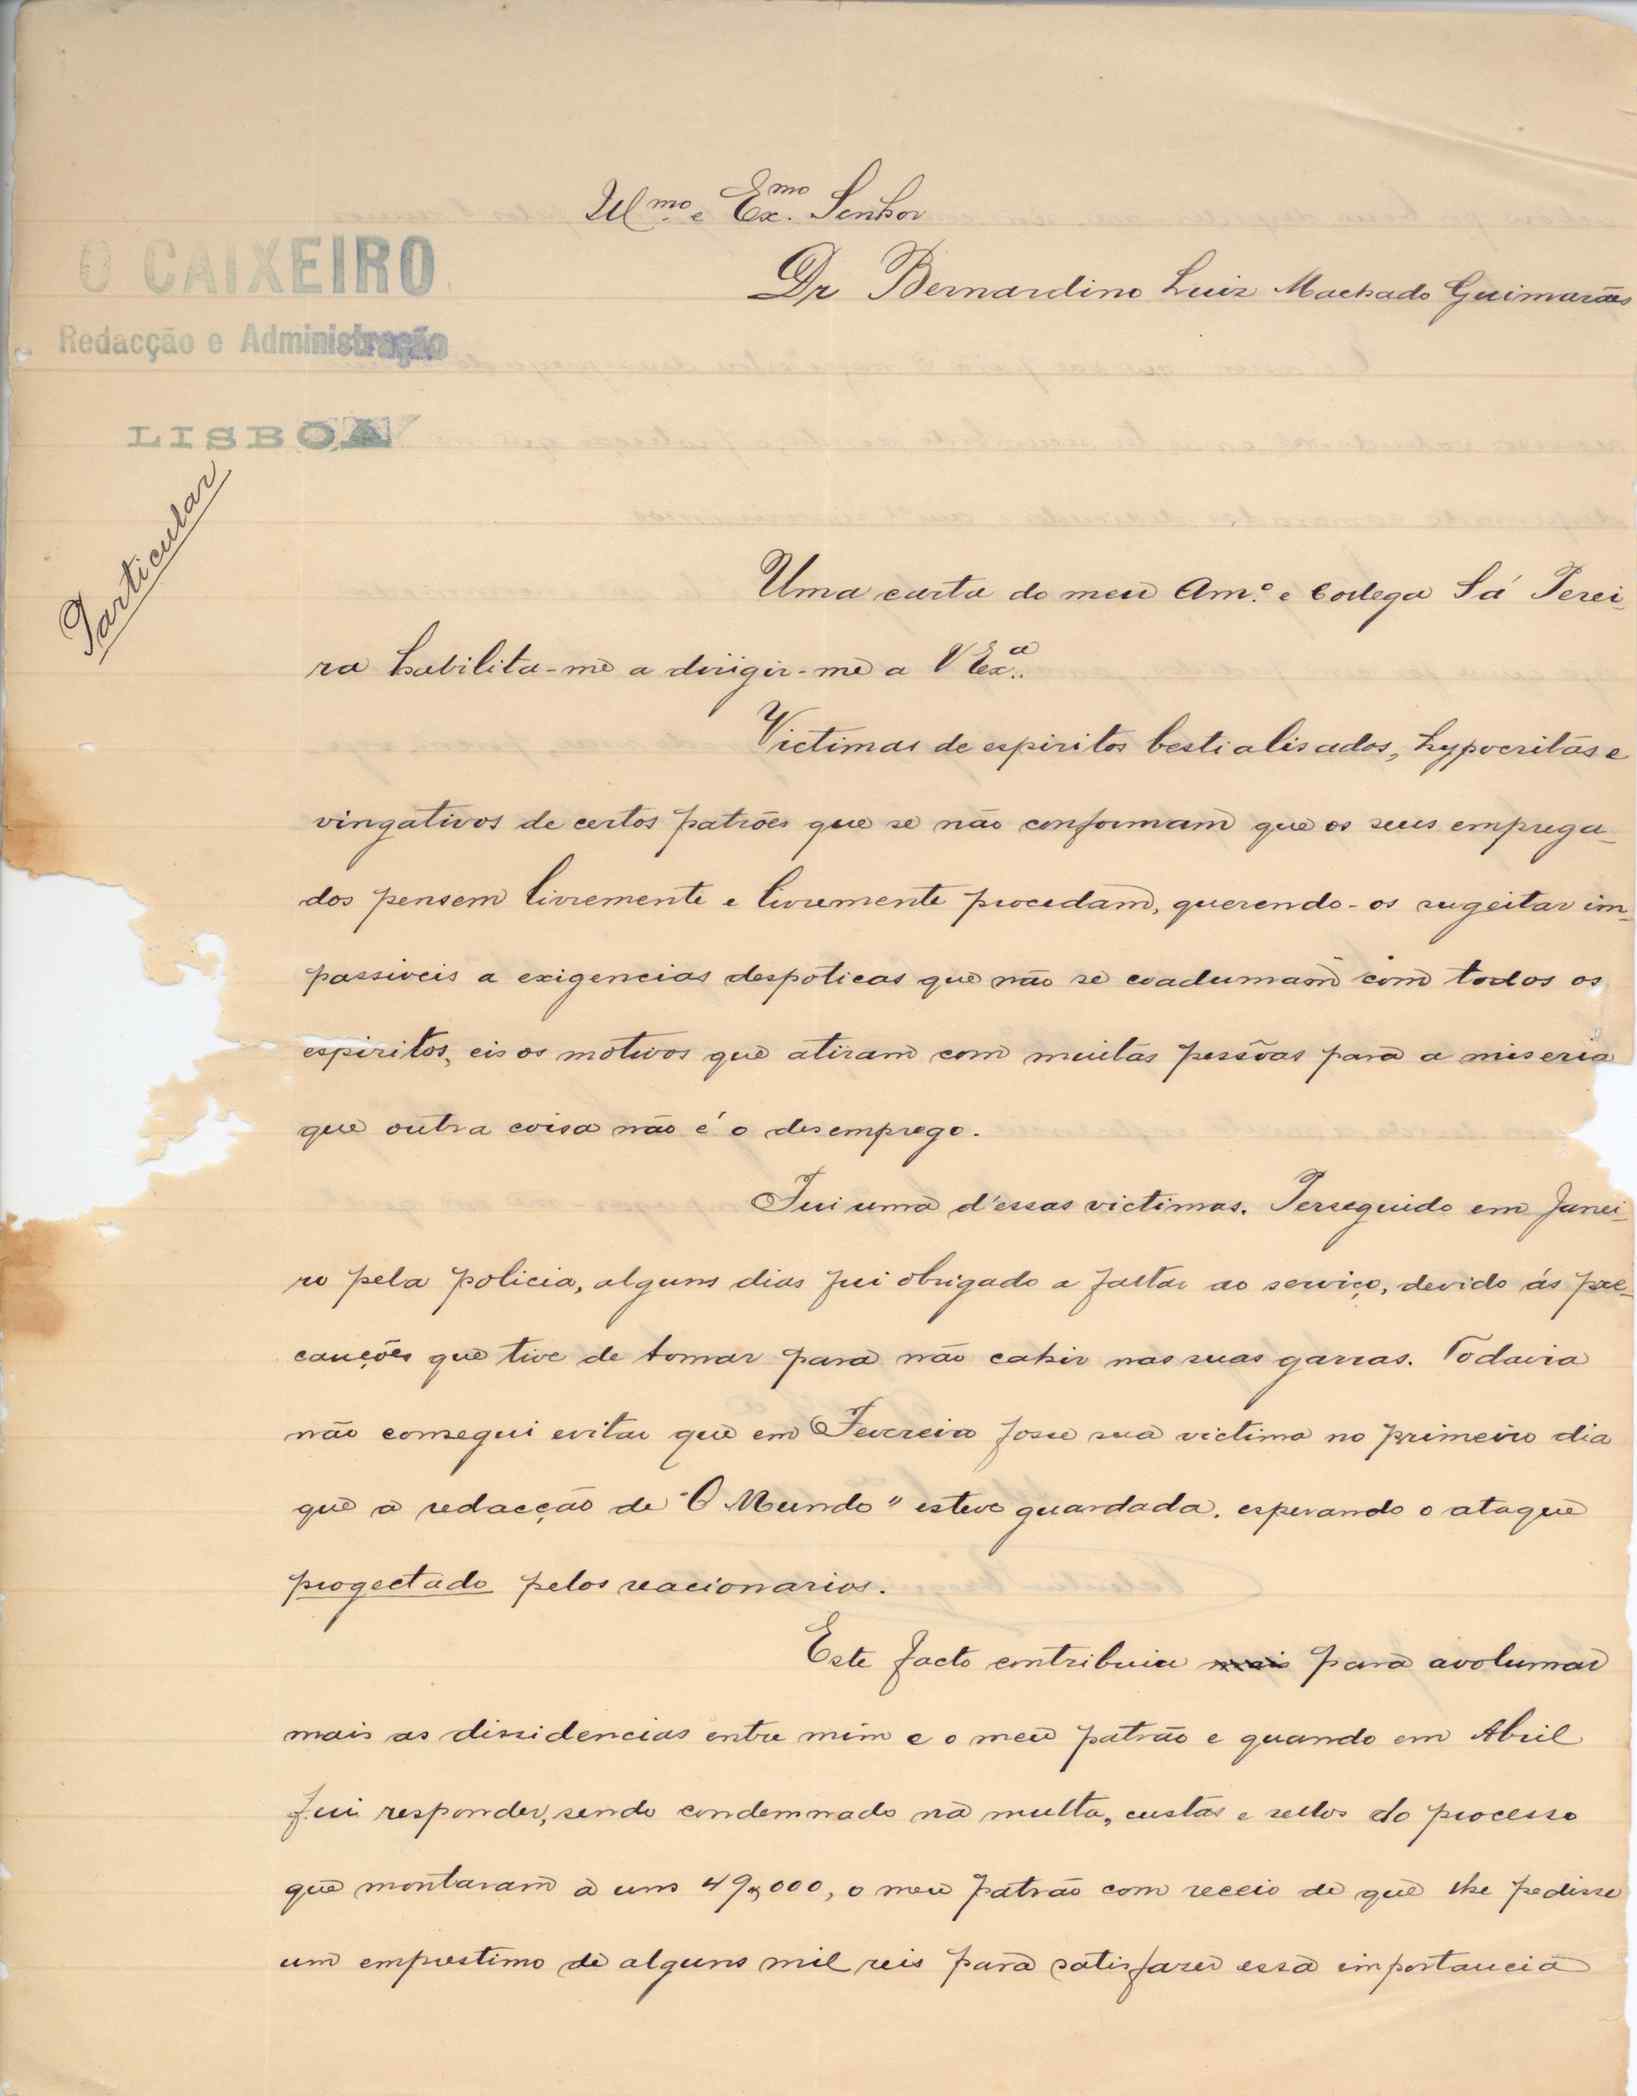 Illmo. e Exmo. Senhor
Dr Bernardino Luiz Machado Guimarães
O CAIXEIRO
Redacção e Administração
LISBOA
Particular
Uma carta do meu Am.º e Collega Sá Perei-
ra habilita-me a dirigir-me a V Exª.
Victimas de espiritos bestialisados, hypocritas e
vingativos de certos patrões que se não conformam que os seus emprega-
dos pensem livremente e livremente procedam, querendo-os sugeitar im-
passiveis a exigencias despoticas que não se coadumam com todos os
espiritos, eis os motivos que atiram com muitas pessõas para a miseria
que outra coisa não é o desemprego.
Fui uma d'essas victimas. Perseguido em Janei-
ro pela policia, alguns dias fui obrigado a faltar ao serviço, devido ás pre-
cauções que tive de tomar para não cahir nas suas garras. Todavia
não consegui evitar que em Fevereiro fosse sua victima no primeiro dia
que a redacção de "O Mundo" esteve guardada, esperando o ataque
progectado pelos reacionarios.
Este facto contribuiu mais para avolumar
mais as dissidencias entre mim e o meu patrão e quando em Abril
fui responder, sendo condemnado na multa, custas e sellos do processo
que montaram a uns 49$000, o meu patrão com receio de que lhe pedisse
um emprestimo de alguns mil reis para satisfazer essa importancia